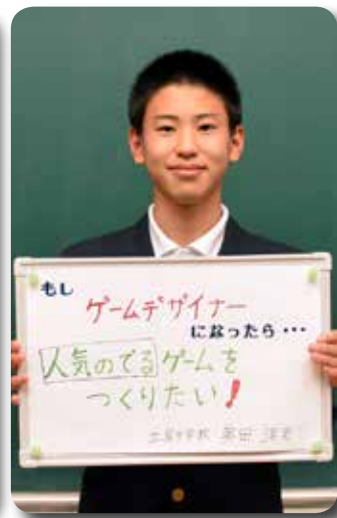 もし
ゲームデザイナー
になったら…
人気のでるゲームを
つくりたい!